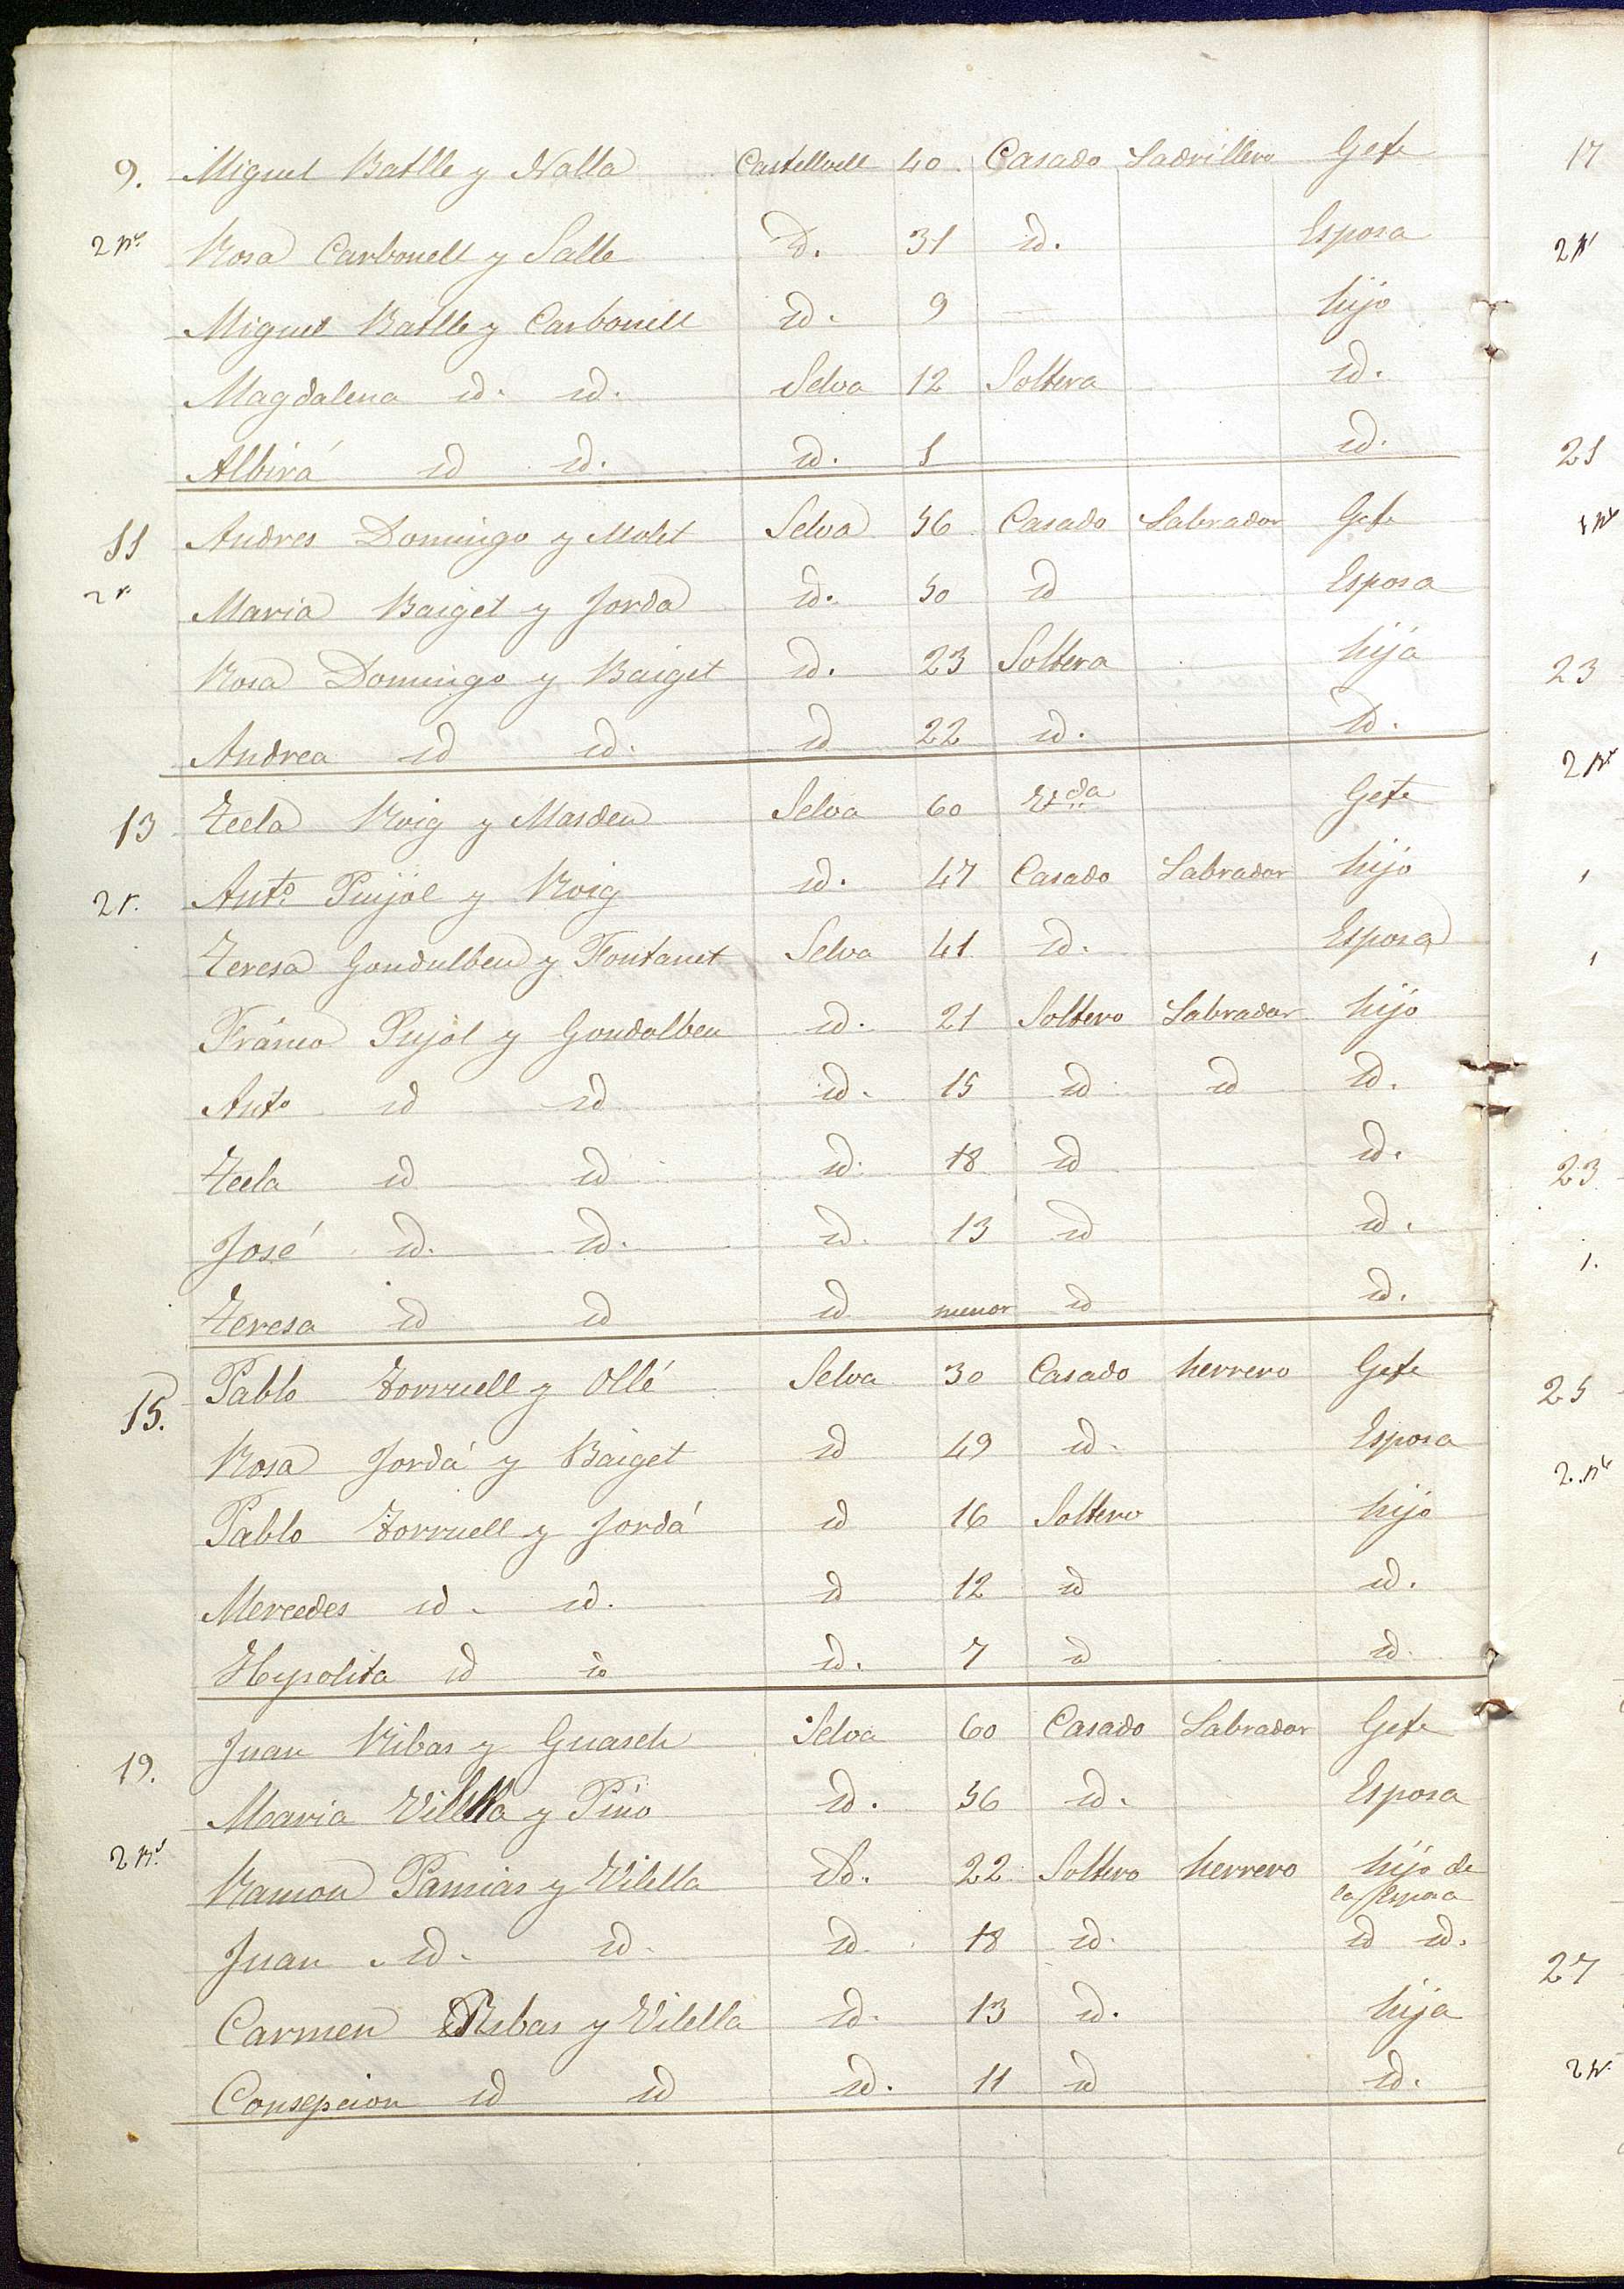 9. Miguel Batlle y Nolla Castellvell 40 Casado Ladrillero Gefe
Rosa Carbonell y Salle id. 31 id. Esposa
Miguel Batlle y Carbonell id. 9 hijo
Magdalena id. id. Selva 12 Soltera id.
Albirá id id. id. 1 id.
11 Andres Domingo y Molet Selva 56 Casado Labrador Gefe
Maria Baiget y Jorda id. 50 id Esposa
Rosa Domingo y Baiget id. 23 Soltera hija
Andrea id id. id 22 id. id.
13 Tecla Roig y Masdeu Selva 60 Vda Gefe
Anto. Pujol y Roig id. 47 Casado Labrador hijo
Teresa Gondulbeu y Fontanet Selva 41 id. Esposa
Franco Pujol y Gondolbeu id. 21 Soltero Labrador hijo
Anto id id id. 15 id id id.
Tecla id id id. 18 id id.
José id. id. id. 13 id id.
Teresa id id id menor id id.
15. Pablo Torruell y Ollé Selva 30 Casado herrero Gefe
Rosa Jordá y Baiget id 49 id. Esposa
Pablo Torruell y Jordá id 16 Soltero hijo
Mercedes id. id. id 12 id id.
Hypolita id id id. 7 id id.
19. Juan Ribas y Guasch Selva 60 Casado Labrador Gefe
Maria Vilella y Pino id. 56 id. Esposa
Ramon Pamias y Vilella id. 22 Soltero herrero hijo de
la Esposa
Juan id. id. id. 18 id. id id.
Carmen Ribas y Vilella id. 13 id. hija
Consepcion id id id. 11 id id.
17
21
23
23
1.
25
27